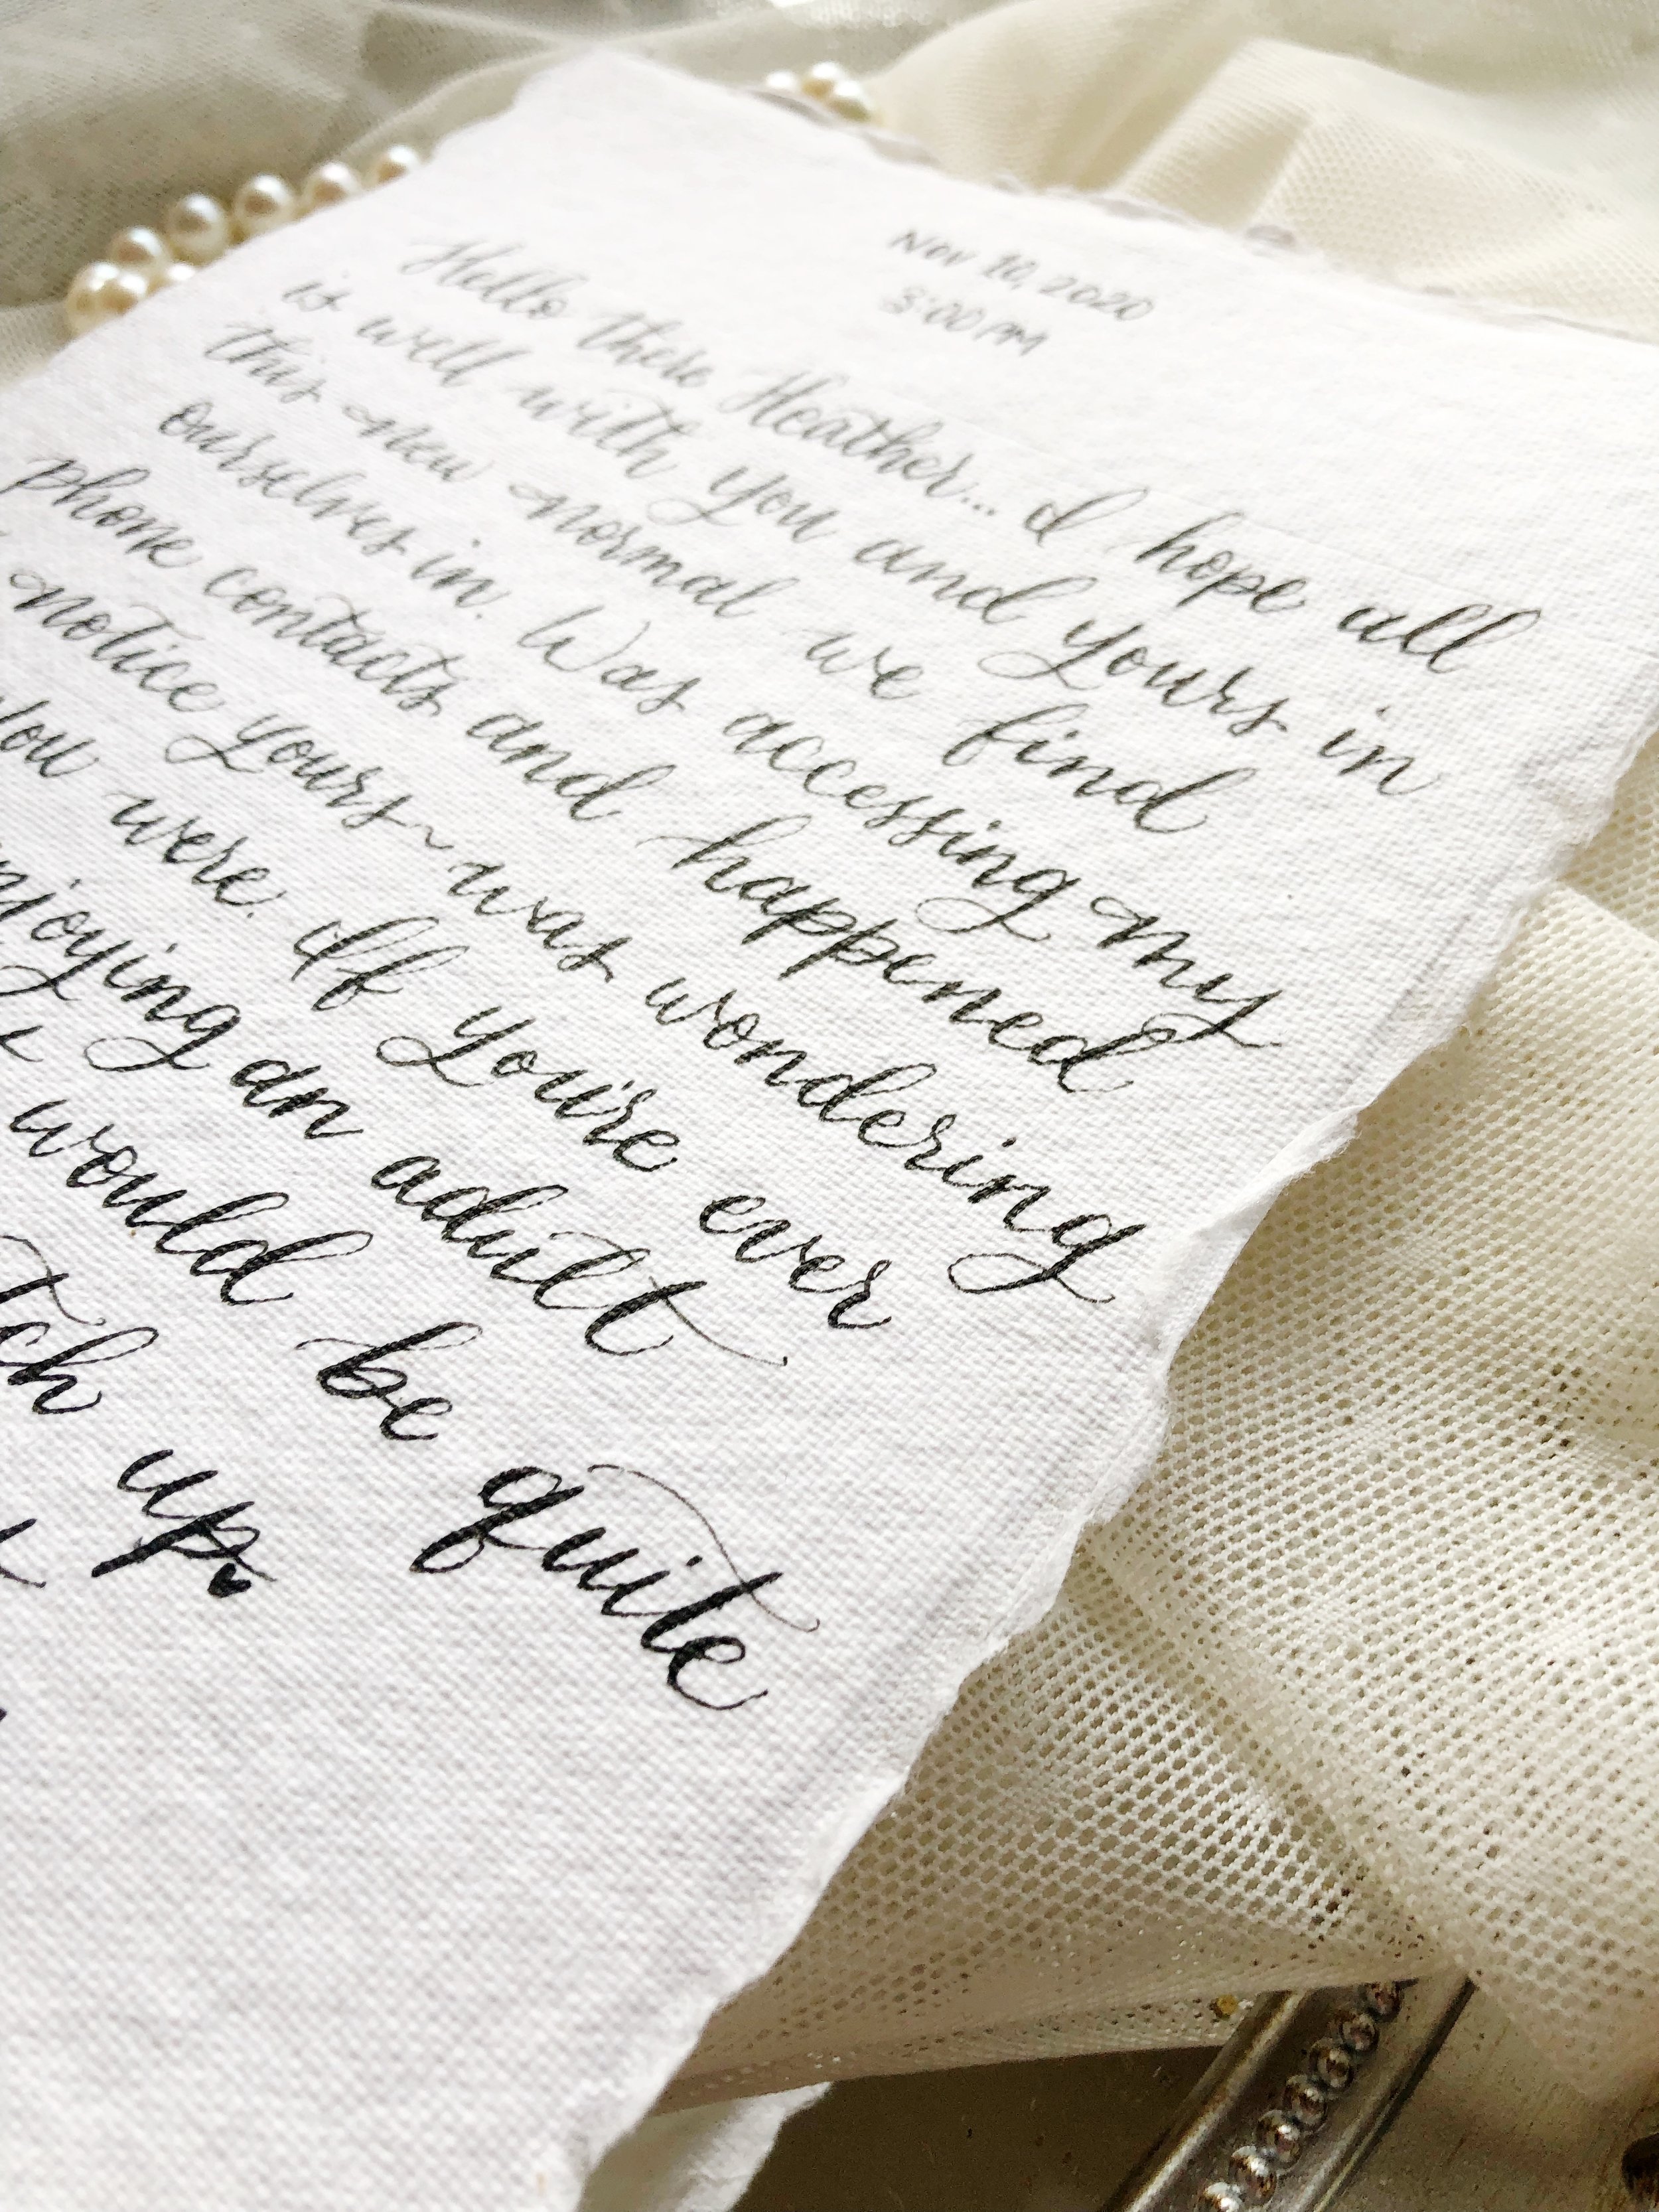 Nov 10, 2020
3:00 PM
Hello there Heather... I hope all
is well with you and yours in
this new normal we find
ourselves in. Was accessing my
phone contacts and happened
notice yours~ was wondering
you were. If you're ever
an adult
would be quite
up.